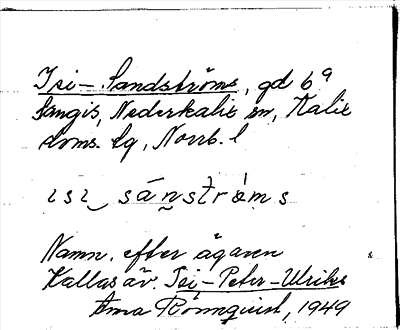 Isi-Sandströms, gd 6ᵃ
Sangis, Nederkalix sn, Kalix
doms. lg, Norrb. l
ısı‿ sán̰strø̀m s
Namn. efter ägaren
Kallas äv. Isi-Peter-Ulriks
Erna Rönnquist, 1949